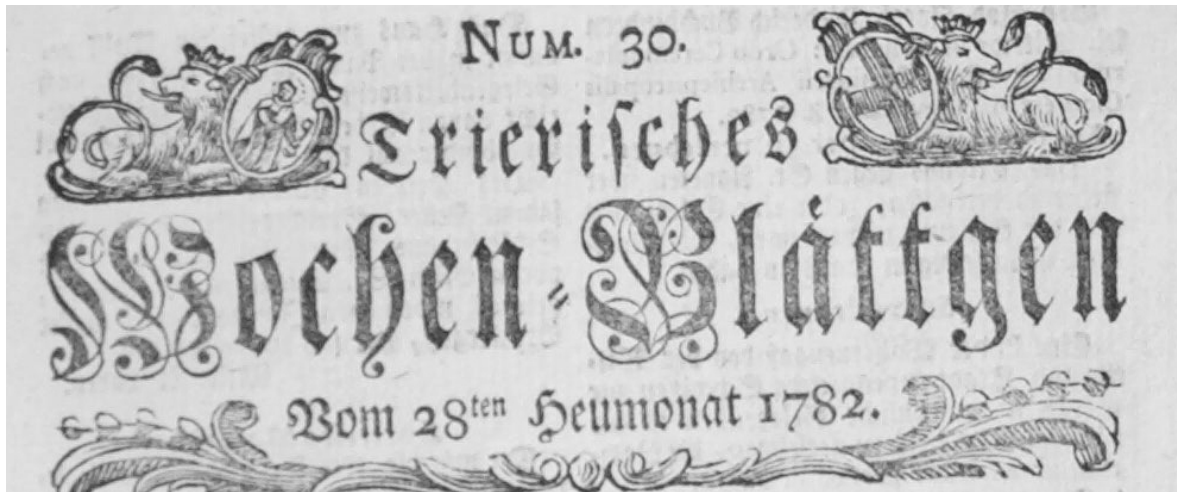 NUM. 30.
Trierisches
Wochen-Blättgen
Vom 28ten Heumonat 1782.